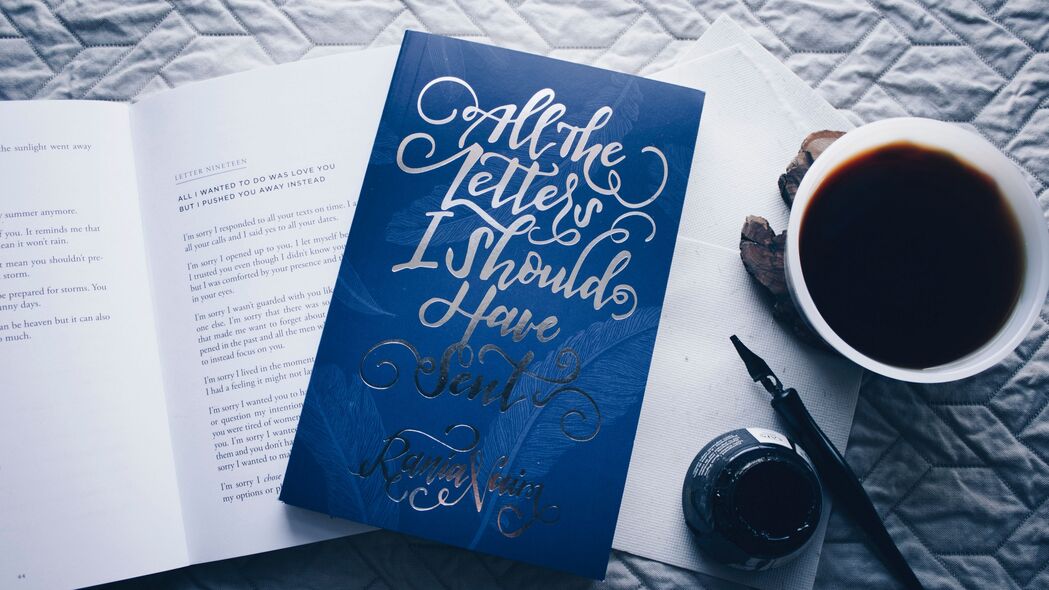 the sunlight went away
summer anymore.
of you. It reminds me that
mean it won't rain.
t mean you shouldn't pre-
storm.
be prepared for storms. You
nny days.
an be heaven but it can also
much.
44
LETTER NINETEEN
ALL I WANTED TO DO WAS LOVE YOU
BUT I PUSHED YOU AWAY INSTEAD
I'm sorry I responded to all your texts on time. I a
all your calls and I said yes to all your dates.
I'm sorry I opened up to you. I let myself be
I trusted you even though I didn't know you
but I was comforted by your presence and th
in your eyes.
I'm sorry I wasn't guarded with you like
one else. I'm sorry that there was so
that made me want to forget about
pened in the past and all the men w
to instead focus on you.
I'm sorry I lived in the moment
I had a feeling it might not la
I'm sorry I wanted you to h
or question my intention
you were tired of women
you. I'm sorry I wanted
them and you don't ha
sorry I wanted to ma
I'm sorry I chose
my options or pl
All The
Letters
I Should
Have
Sent
Rania Naim